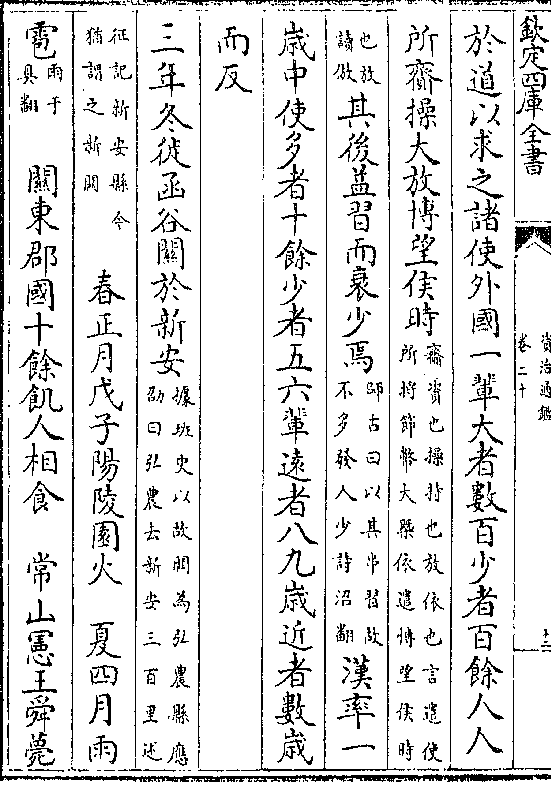 欽定四庫全書
資治通鑑
卷二十
十二
於道以求之諸使外國一輩大者數百少者百餘人人
所齎操大放博望侯時
齎資也操持也放依也言遣使
所將節幣大槩依遣博望侯時
也放
讀倣
其後益習而衰少焉
師古曰以其串習故
不多發人少詩沼翻
漢率一
歲中使多者十餘少者五六輩遠者八九歲近者數歲
而反
三年冬徙函谷關於新安
據班史以故關為弘農縣應
劭曰弘農去新安三百里述
征記新安縣今
猶謂之新關
春正月戊子陽陵園火 夏四月雨
雹
雨于
具翻
關東郡國十餘飢人相食 常山憲王舜薨